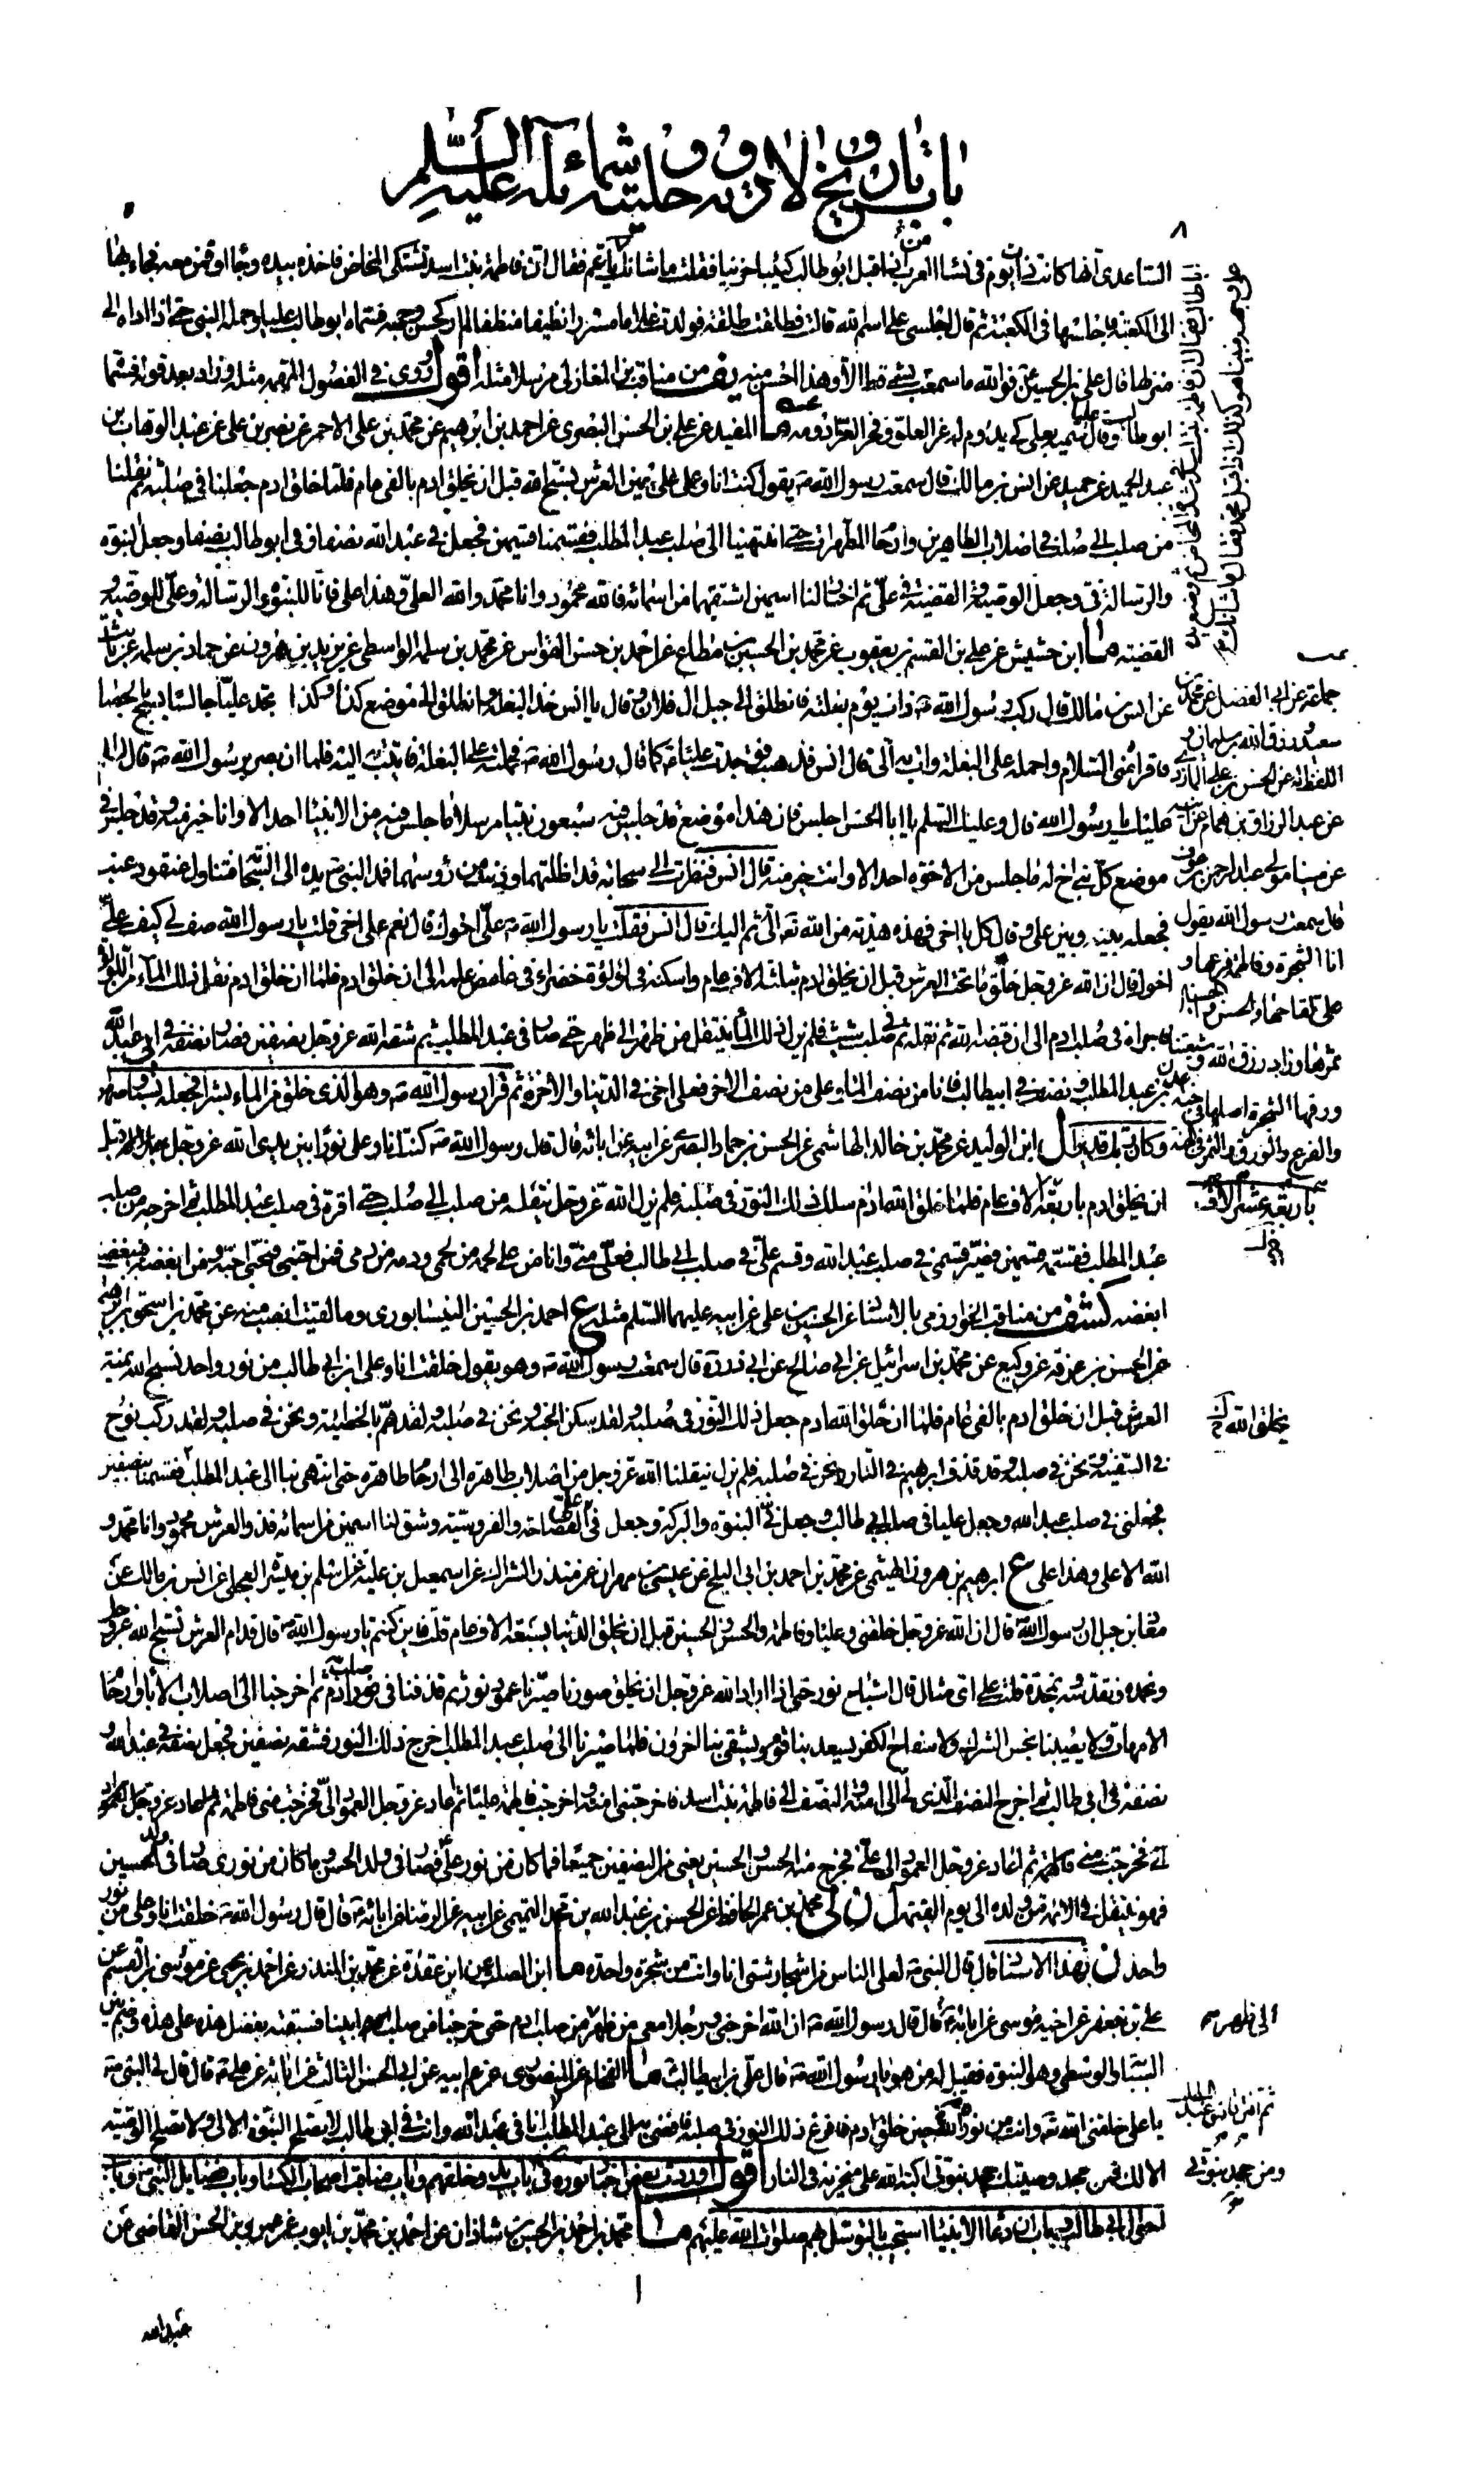 باب تاريخ ولادته وحليته وشمائله عليه السلم
٨
الساعدى انها كانت ذات يوم فى نساء من العرب اذ اقبل ابو طالب كئيبا حزينا فقلت ما شانك يا عم فقال ان فاطمة بنت اسد تشتكى المخاض فاخذه بيده وجاء وقمن معه فجاء بها
الى الكعبة فاجلسها فى الكعبة ثم قال اجلسى على اسم الله قالت فطلقت طلقة فولدت غلاما مسرورا نظيفا منظفا لم ار كحسن وجهه فسماه ابو طالب عليا وحمله النبى حتى اداه الى
منزلها قال على بن الحسين فوالله ما سمعت بشىء قط الا وهذا احسن منه يف من مناقب ابن المغازلى مرسلا مثله اقول روى فى الفصول المهمة مثله وزاد بعد قوله فسماه
ابو طالب عليا وقال سميته بعلى كى يدوم له عز العلو وفخر العز ادومه ما المفيد عن على بن الحسن البصرى عن احمد بن ابرهيم عن محمد بن على الاحمر عن نصر بن على عن عبد الوهاب بن
عبد الحميد عن حميد عن انس بن مالك قال سمعت رسول الله ص يقول كنت انا وعلى على يمين العرش نسبح الله قبل ان يخلق ادم بالفى عام فلما خلق ادم جعلنا فى صلبه ثم نقلنا
من صلب الى صلب فى اصلاب الطاهرين وارحام المطهرات حتى انتهينا الى صلب عبد المطلب فقسمنا قسمين فجعل فى عبد الله نصفا وفى ابو طالب نصفا وجعل النبوة
والرسالة فى وجعل الوصية والقضية فى على ثم اختار لنا اسمين اشتقهما من اسمائه فالله محمود وانا محمد والله العلى وهذا على فانا للنبوة والرسالة وعلى للوصية و
القضية ما ابن حشيش عن على بن القسم بن يعقوب عن محمد بن الحسين بن مطاع عن احمد بن حسن القواس عن محمد بن سلمة الواسطى عن يزيد بن هرون عن حماد بن سلمة عن ثابت
عن انس بن مالك قال ركب رسول الله ص ذات يوم بغلته فانطلق الى جبل ال فلان وقال يا انس خذ البغلة وانطلق الى موضع كذا وكذا تجد عليا جالسا يسبح بالحصا
فاقراه منى السلام واحمله على البغلة وات به الى قال انس فذهبت فوجدت عليا كما قال رسول الله ص فحملته على البغلة فاتيت به اليه فلما ان بصر برسول الله ص قال السلام
عليك يا رسول الله قال وعليك السلم يا ابا الحسن اجلس فان هذا موضع قد جلس فيه سبعون نبيا مرسلا ما جلس فيه من الانبياء احد الا وانا خير منه وقد جلس فى
موضع كل نبى اخ له ما جلس من الاخوة احد الا وانت خير منه قال انس فنظرت الى سحابة قد اظلتهما ودنت من رؤسهما فمد النبى ص يده الى السحابة فتناول عنقود عنب
فجعله بينه وبين على وقال كل يا اخى فهذه هدية من الله تعالى الى ثم اليك قال انس فقلت يا رسول الله على اخوك قال نعم على اخى قلت يا رسول الله صف لى كيف على
اخوك قال ان الله عز وجل خلق ماء تحت العرش قبل ان يخلق ادم بثلثة الاف عام واسكنه فى لؤلؤة خضراء فى غامض علمه الى ان خلق ادم فلما ان خلق ادم نقل ذلك الماء من اللؤلؤة
فاجراه فى صلب ادم الى ان قبضه الله ثم نقله الى صلب شيث فلم يزل ذلك الماء ينتقل من ظهر الى ظهر حتى صار فى عبد المطلب ثم شقه الله عز وجل بنصفين فصار نصفه فى ابى عبد الله
بن عبد المطلب ونصف فى ابى طالب فانا من نصف الماء وعلى من نصف الاخر فعلى اخى فى الدنيا والاخرة ثم قرا رسول الله ص وهو الذى خلق من الماء بشرا فجعله نسبا وصهرا
وكان ربك قديرا ل ابن الوليد عن محمد بن خالد الهاشمى عن الحسن بن حماد البصرى عن ابيه عن ابائه قال قال رسول الله ص كنت انا وعلى نورا بين يدى الله عز وجل قبل
ان يخلق ادم باربعة الاف عام فلما خلق الله ادم سلك ذلك النور فى صلبه فلم يزل الله عز وجل ينقله من صلب الى صلب حتى اقره فى صلب عبد المطلب ثم اخرجه من صلب
عبد المطلب فقسمه قسمين فصير قسمى فى صلب عبد الله وقسم على فى صلب ابى طالب فعلى منى وانا من على لحمه من لحمى ودمه من دمى فمن احبنى فبحبى احبه ومن ابغضه فببغضى
ابغضه كشف من مناقب الخوارزمى بالاسناد عن الحسين بن على عن ابيه عليهما السلم مثله ع احمد بن الحسين النيسابورى وما لقيت انصب منه عن محمد بن اسحق بن ابراهيم
عن الحسن بن عرفة عن وكيع عن محمد بن اسرائيل عن ابى صالح عن ابى ذر ره قال سمعت رسول الله ص وهو يقول خلقت انا وعلى بن ابى طالب من نور واحد نسبح الله يمنة
العرش قبل ان خلق ادم بالفى عام فلما ان خلق الله ادم جعل ذلك النور فى صلبه ولقد سكن الجنة ونحن فى صلبه ولقد هم بالخطيئة ونحن فى صلبه ولقد ركب نوح
فى السفينة ونحن فى صلبه وقد قذف ابرهيم فى النار ونحن فى صلبه فلم يزل ينقلنا الله عز وجل من اصلاب طاهرة الى ارحام طاهرة حتى انتهى بنا الى عبد المطلب فقسمنا بنصفين
فجعلنى فى صلب عبد الله وجعل عليا فى صلب ابى طالب وجعل فى النبوة والبركة وجعل فى على الفصاحة والفروسية وشق لنا اسمين من اسمائه فذو العرش محمود وانا محمد و
الله الاعلى وهذا على ع ابرهيم بن هرون الهيثمى عن محمد بن احمد بن ابى الثلج عن عيسى بن مهران عن منذر الشراك عن اسمعيل بن علية عن اسلم بن ميسرة العجلى عن انس بن مالك عن
معاذ بن جبل ان رسول الله قال ان الله عز وجل خلقنى وعليا وفاطمة والحسن والحسين قبل ان يخلق الدنيا بسبعة الاف عام قلت فاين كنتم يا رسول الله قال قدام العرش نسبح الله عز وجل
ونحمده ونقدسه ونمجده قلت على اى مثال قال اشباح نور حتى اذا اراد الله عز وجل ان يخلق صورنا صيرنا عمود نور ثم قذفنا فى صلب ادم ثم اخرجنا الى اصلاب الاباء وارحام
الامهات ولا يصيبنا نجس الشرك ولا سفاح الكفر يسعد بنا قوم ويشقى بنا اخرون فلما صيرنا الى صلب عبد المطلب اخرج ذلك النور فشقه نصفين فجعل نصفه فى عبد الله و
نصفه فى ابى طالب ثم اخرج النصف الذى لى الى امنة والنصف الى فاطمة بنت اسد فاخرجتنى امنة واخرجت فاطمة عليا ثم اعاد عز وجل العمود الى فخرجت منى فاطمة ثم اعاد عز وجل العمود
الى على فخرج منه الحسن والحسين يعنى من النصفين جميعا فما كان من نور على فصار فى ولد الحسن وما كان من نورى صار فى ولد الحسين
فهو ينتقل فى الائمة من ولده الى يوم القيمة ن لى محمد بن عمر الحافظ عن الحسن بن عبد الله بن محمد التميمى عن ابيه عن الرضا عن ابائه قال قال رسول الله ص خلقت انا وعلى من نور
واحد ن بهذا الاسناد قال قال النبى ص لعلى الناس من اشجار شتى انا وانت من شجرة واحدة ما ابن الصلت عن ابن عقدة عن محمد بن المنذر عن احمد بن يحيى عن موسى بن القسم عن
على بن جعفر عن اخيه موسى عن ابائه قال قال رسول الله ص ان الله اخرجنى ورجلا معى من ظهر من صلب ادم حتى خرجنا من صلب ابينا فسبقته بفضل هذه على هذه وضم بين
السبابة والوسطى وهو النبوة فقيل له من هو يا رسول الله ص قال على بن ابى طالب ما الفحام عن المنصورى عن عم ابيه عن ابى الحسن الثالث عن ابائه عن على قال قال لى النبى ص
يا على خلقنى الله تعالى وانت من نوره حين خلق ادم فافرغ ذلك النور فى صلبه فافضى به الى عبد المطلب انا فى عبد الله وانت فى ابى طالب لا تصلح النبوة الا لى ولا تصلح الوصية
الا لك فمن جحد وصيتك جحد نبوتى اكبه الله على منخريه فى النار اقول اوردت بعض اخبار نوره فى باب بدو خلقهم وباب مناقب اصحاب الكساء وباب فضايل النبى ص وباب
احوال ابى طالب وباب ان دعاء الانبياء استجيب بالتوسل بهم صلوات الله عليهم ما محمد بن احمد بن الحسين بن شاذان عن احمد بن محمد بن ايوب عن عمر بن الحسن القاضى عن
عبد الله
جماعة عن ابى المفضل عن محمد بن
سعيد ورزق الله بن سليمان و
اللفظ له عن الحسن بن على الازدى
عن عبد الرزاق بن همام عن ابيه
عن مينا مولى عبد الرحمن بن عوف
قال سمعت رسول الله يقول
انا الشجرة وفاطمة فرعها و
على لقاحها والحسن والحسين
ثمرها وزاد رزق الله وشيعتنا
ورقها الشجرة اصلها فى جنة عدن
والفرع والورق والثمر فى الجنة
باربعة عشر الاف
يخلق الله
الى ظهر
ثم افترقا من عبد المطلب
ومن جحد نبوتى